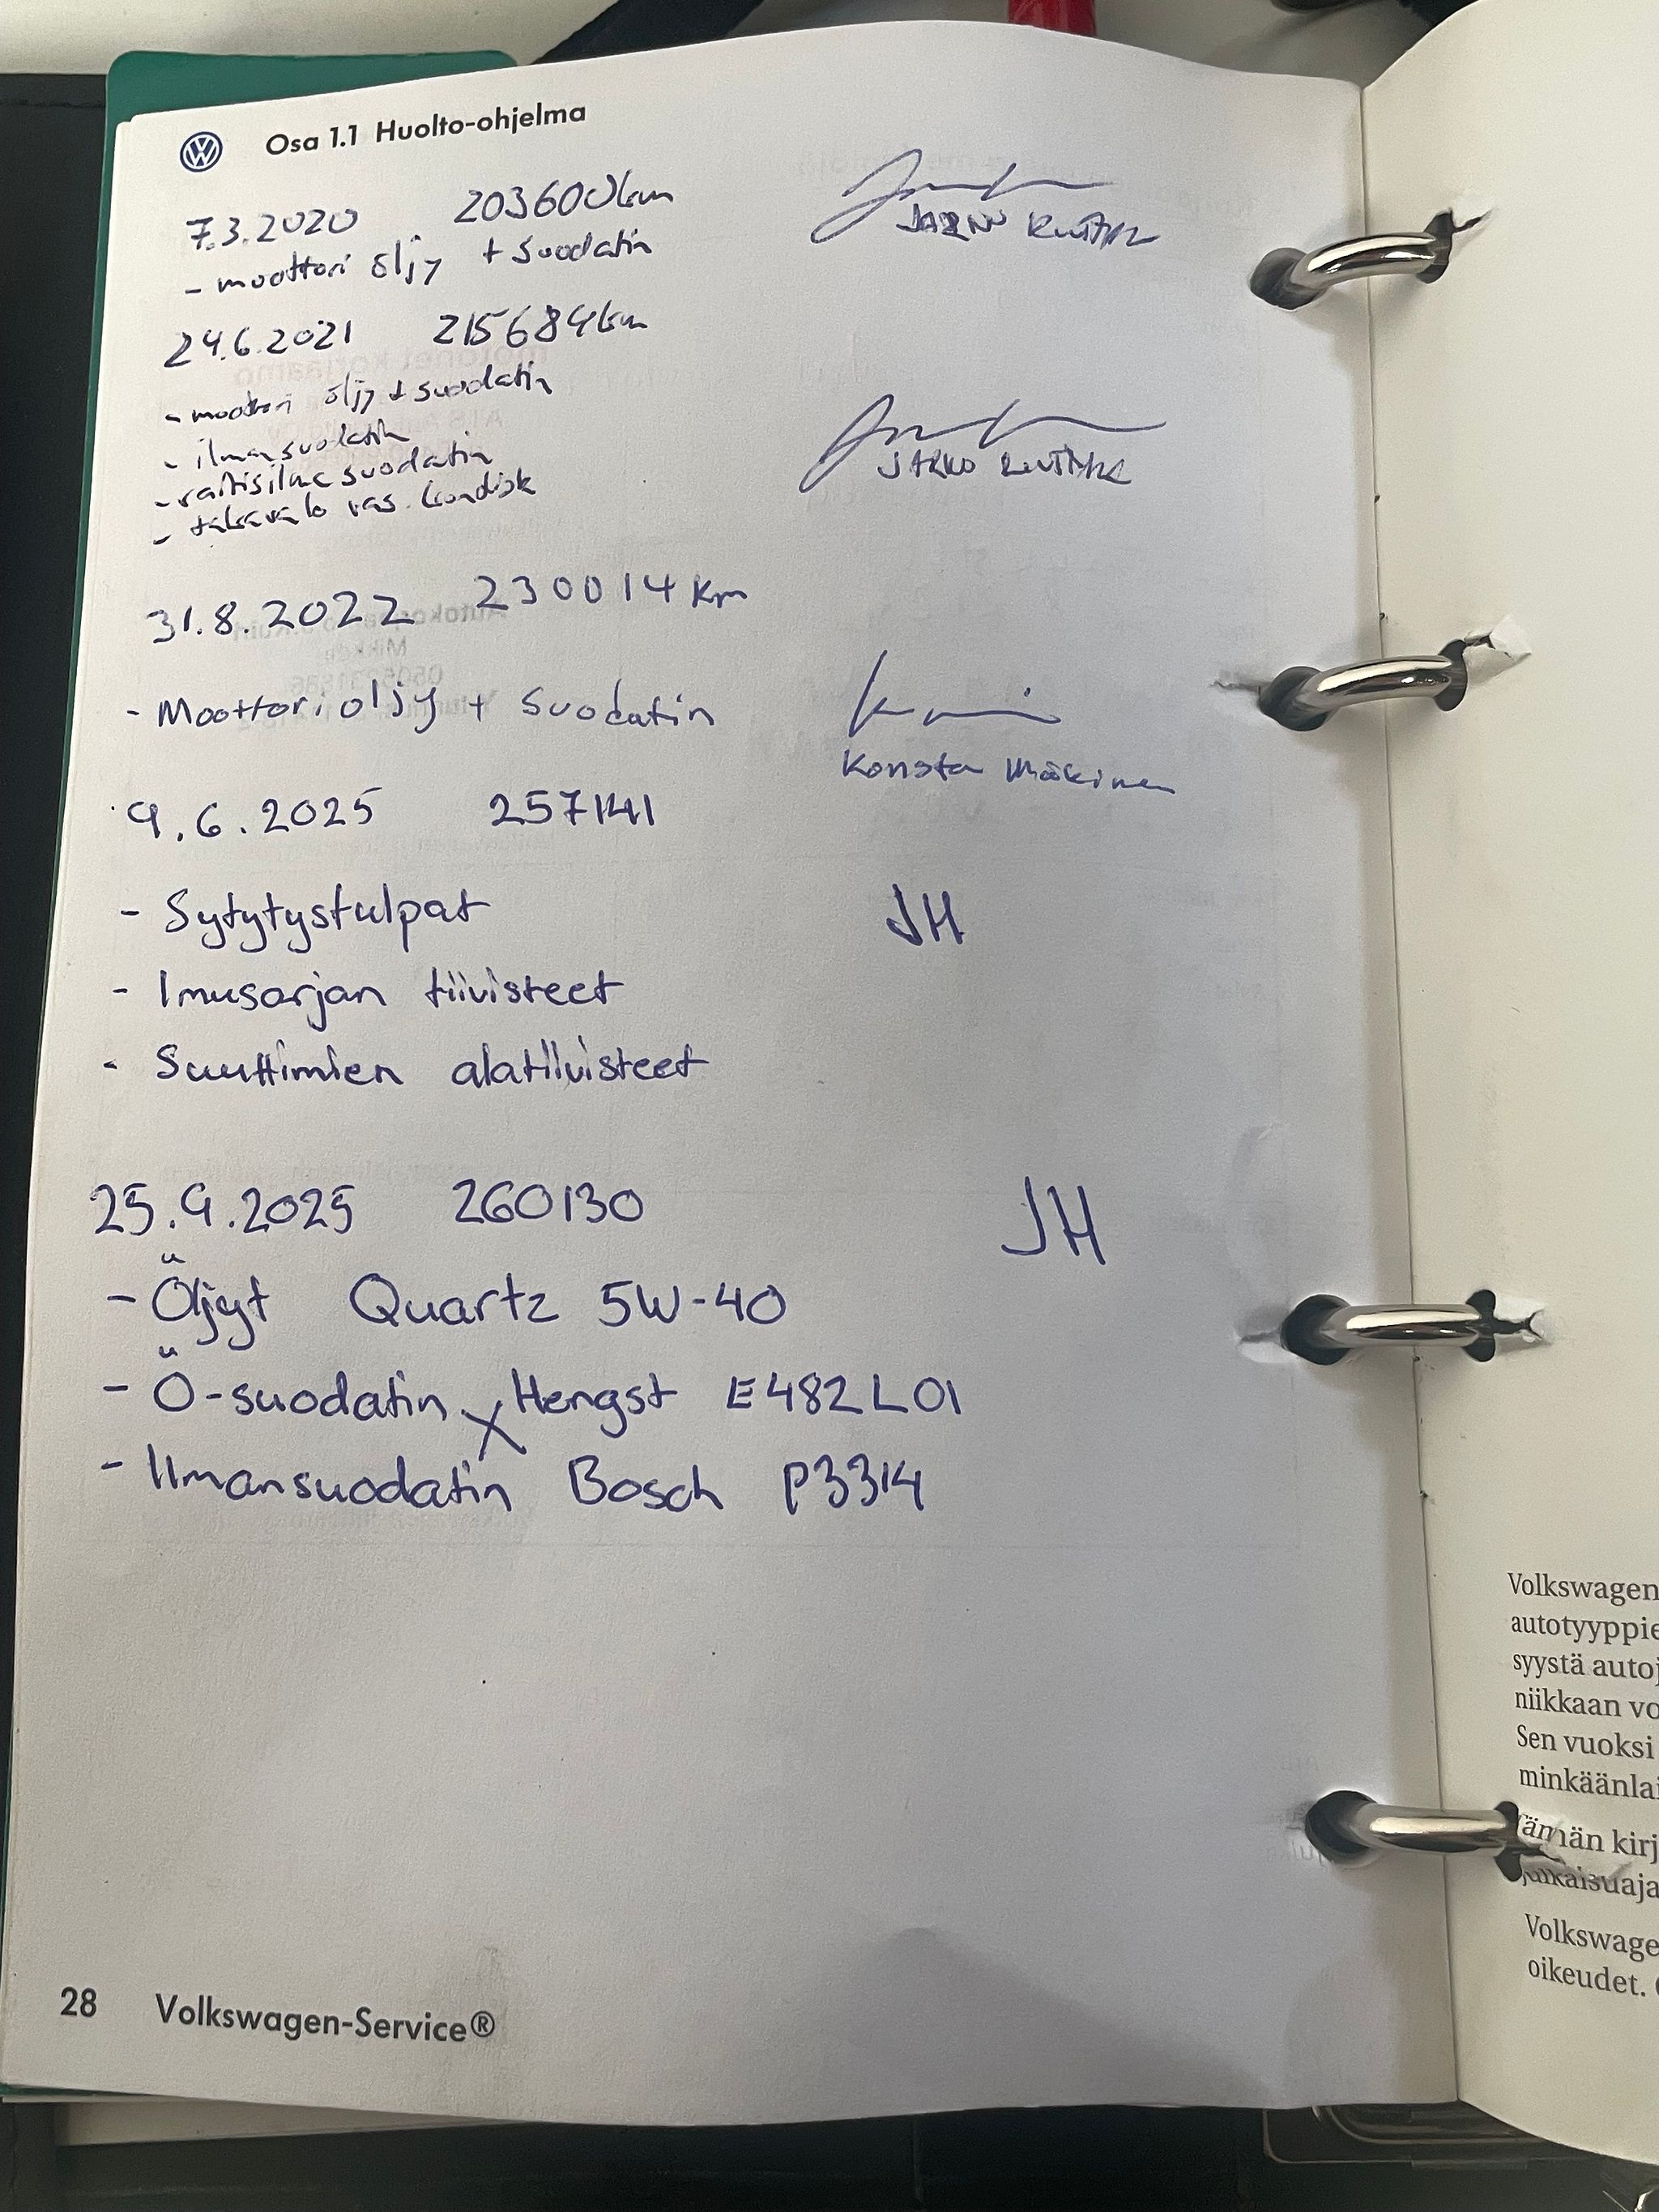 Osa 1.1 Huolto-ohjelma
7.3.2020 203600km
- moottori öljy + suodatin
24.6.2021 215684km
- moottori öljy + suodatin
- ilmansuodatin
- raitisilma suodatin
- takavalo vas.
31.8.2022 230014 km
- Moottoriöljy + suodatin
Konsta Mäkinen
9.6.2025 257141
- Sytytystulpat JH
- Imusarjan tiivisteet
- Suuttimien alatiivisteet
25.9.2025 260130 JH
- Öljyt Quartz 5W-40
- Ö-suodatin Hengst E482L01
- Ilmansuodatin Bosch P3314
28 Volkswagen-Service®
Volkswagen
autotyyppie
syystä autoj
niikkaan vo
Sen vuoksi
minkäänlai
ämän kirj
julkaisuaja
Volkswage
oikeudet.